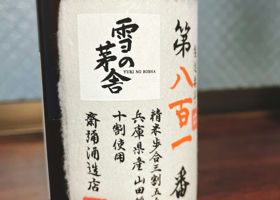 雪の茅舎
YUKI NO BOSHA
第八百一番
精米歩合三割五
兵庫県産山田
十割使用
齋彌酒造店